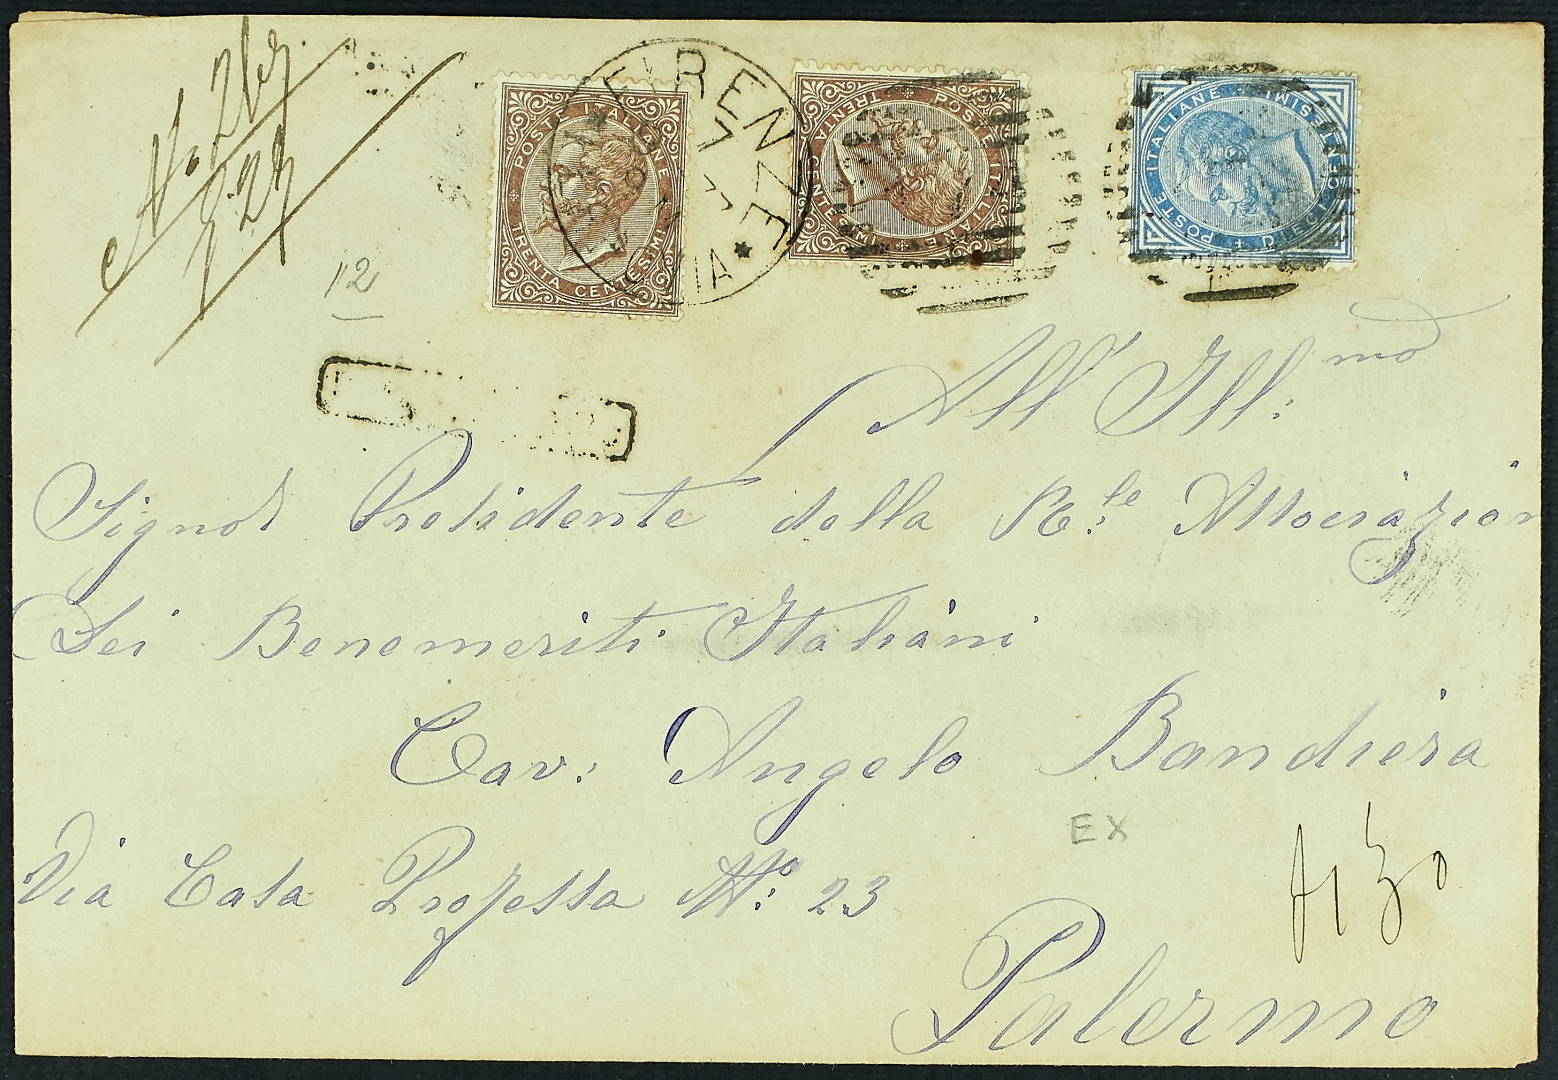 N. 263.
£. 23
12
POSTE ITALIANE
TRENTA CENTESIMI
FIRENZE
POSTE ITALIANE
TRENTA CENTESIMI
POSTE ITALIANE
DIECI CENTESIMI
All' Ill:mo
Signor Presidente della R:le Associazion
Dei Benemeriti Italiani
Cav: Angelo Bandiera
EX
Via Casa Professa No: 23
Palermo